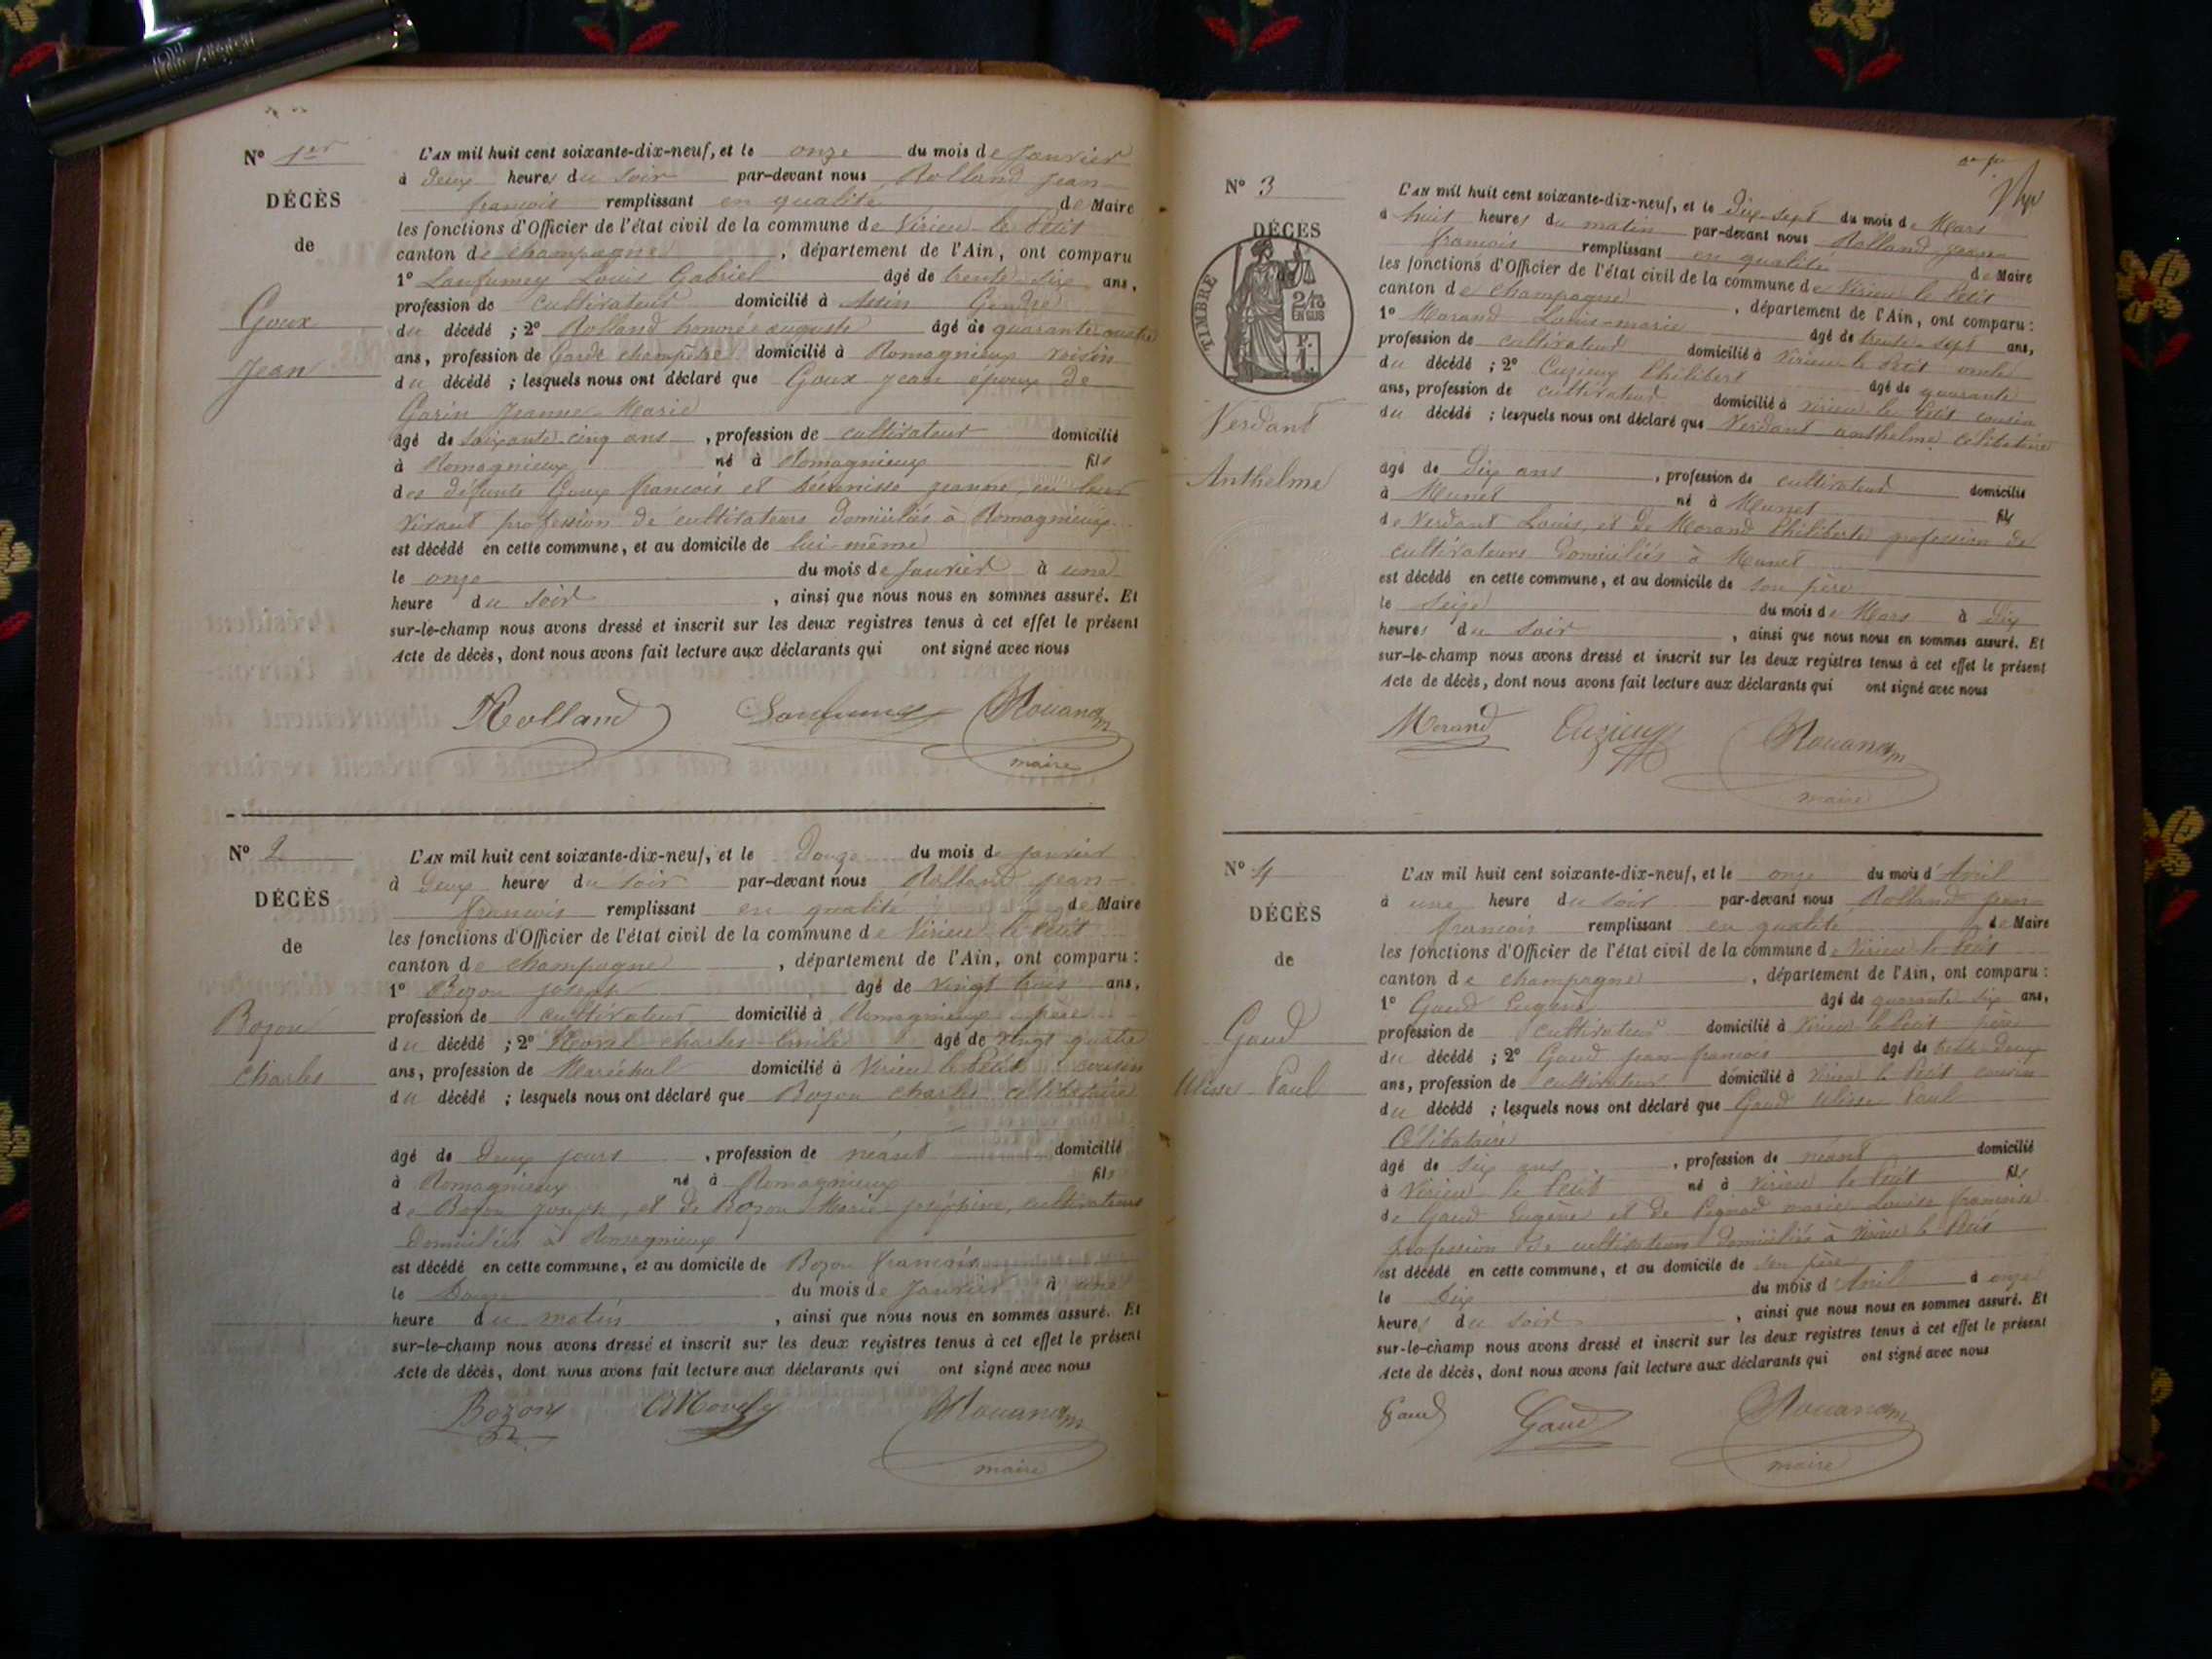 N° 1er
DÉCÈS
de
Goux
Jean
L'AN mil huit cent soixante-dix-neuf, et le onze du mois de Janvier
à deux heures du soir par-devant nous Rolland Jean-
francois remplissant en qualité de Maire
les fonctions d'Officier de l'état civil de la commune de Virieu le Petit
canton de champagne, département de l'Ain, ont comparu
1° Lanfumey Louis Gabriel âgé de trente-six ans,
profession de cultivateur domicilié à Gendre
du décédé ; 2° Rolland honoré auguste âgé de quarante quatre
ans, profession de Garde champêtre domicilié à Romagnieux voisin
du décédé ; lesquels nous ont déclaré que Goux Jean époux de
Garin Jeanne-Marie
âgé de soixante cinq ans, profession de cultivateur domicilié
à Romagnieux né à Romagnieux fils
des défunts Goux francois et jeanne, en leur
vivant profession de cultivateurs domiciliés à Romagnieux
est décédé en cette commune, et au domicile de lui-même
le onze du mois de Janvier à une
heure du soir, ainsi que nous nous en sommes assuré. Et
sur-le-champ nous avons dressé et inscrit sur les deux registres tenus à cet effet le présent
Acte de décès, dont nous avons fait lecture aux déclarants qui ont signé avec nous
Rolland Lanfumey
maire
N° 2
DÉCÈS
de
Bozon
Charles
L'AN mil huit cent soixante-dix-neuf, et le Douze du mois de janvier
à deux heures du soir par-devant nous Rolland Jean-
francois remplissant en qualité de Maire
les fonctions d'Officier de l'état civil de la commune de Virieu le Petit
canton de champagne, département de l'Ain, ont comparu :
1° Bozon joseph âgé de vingt trois ans,
profession de cultivateur domicilié à Romagnieux père
du décédé ; 2° charles Emile âgé de vingt quatre
ans, profession de Maréchal domicilié à Virieu le Petit cousin
du décédé ; lesquels nous ont déclaré que Bozon charles célibataire
âgé de Deux jours, profession de néant domicilié
à Romagnieux né à Romagnieux fils
de Bozon joseph, et de Bozon Marie-joséphine, cultivateurs
domiciliés à Romagnieux
est décédé en cette commune, et au domicile de Bozon francois
le Douze du mois de Janvier à une
heure du matin, ainsi que nous nous en sommes assuré. Et
sur-le-champ nous avons dressé et inscrit sur les deux registres tenus à cet effet le présent
Acte de décès, dont nous avons fait lecture aux déclarants qui ont signé avec nous
Bozon
maire
N° 3
DÉCÈS
de
TIMBRE
Verdant
Anthelme
L'AN mil huit cent soixante-dix-neuf, et le Dix-sept du mois de Mars
à huit heures du matin par-devant nous Rolland jean
francois remplissant en qualité de Maire
les fonctions d'Officier de l'état civil de la commune de Virieu le Petit
canton de champagne, département de l'Ain, ont comparu :
1° Morand Louis-marie âgé de trente-sept ans,
profession de cultivateur domicilié à Virieu le Petit oncle
du décédé ; 2° Cuzieux Philibert âgé de quarante
ans, profession de cultivateur domicilié à Virieu le Petit cousin
du décédé ; lesquels nous ont déclaré que Verdant anthelme célibataire
âgé de Dix ans, profession de cultivateur domicilié
à Munet né à Munet fils
de Verdant Louis, et de Morand Philiberte profession de
cultivateurs domiciliés à Munet
est décédé en cette commune, et au domicile de son père
le seize du mois de Mars à Dix
heures du soir, ainsi que nous nous en sommes assuré. Et
sur-le-champ nous avons dressé et inscrit sur les deux registres tenus à cet effet le présent
Acte de décès, dont nous avons fait lecture aux déclarants qui ont signé avec nous
Morand Cuzieux
maire
N° 4
DÉCÈS
de
Gaud
Ulisse-Paul
L'AN mil huit cent soixante-dix-neuf, et le onze du mois d'Avril
à une heure du soir par-devant nous Rolland jean
francois remplissant en qualité de Maire
les fonctions d'Officier de l'état civil de la commune de Virieu le Petit
canton de champagne, département de l'Ain, ont comparu :
1° Gaud Eugène âgé de quarante six ans,
profession de cultivateur domicilié à Virieu le Petit père
du décédé ; 2° Gaud jean francois âgé de trente-deux
ans, profession de cultivateur domicilié à Virieu le Petit cousin
du décédé ; lesquels nous ont déclaré que Gaud Ulisse Paul
Célibataire
âgé de six ans, profession de néant domicilié
à Virieu le Petit né à Virieu le Petit fils
de Gaud Eugène et de marie Louise francoise
profession de cultivateurs domiciliés à Virieu le Petit
est décédé en cette commune, et au domicile de son père
le Dix du mois d'Avril à onze
heures du soir, ainsi que nous nous en sommes assuré. Et
sur-le-champ nous avons dressé et inscrit sur les deux registres tenus à cet effet le présent
Acte de décès, dont nous avons fait lecture aux déclarants qui ont signé avec nous
Gaud Gaud
maire